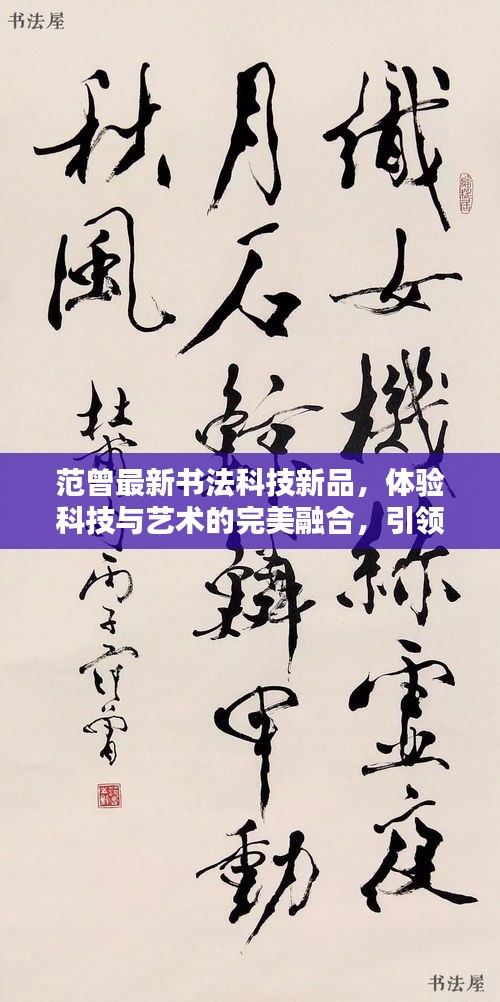 书法屋
織女機絲虛夜
月石鯨鱗甲動
秋風
杜甫句丙子范曾
范曾最新书法科技新品，体验
科技与艺术的完美融合，引领
书法屋